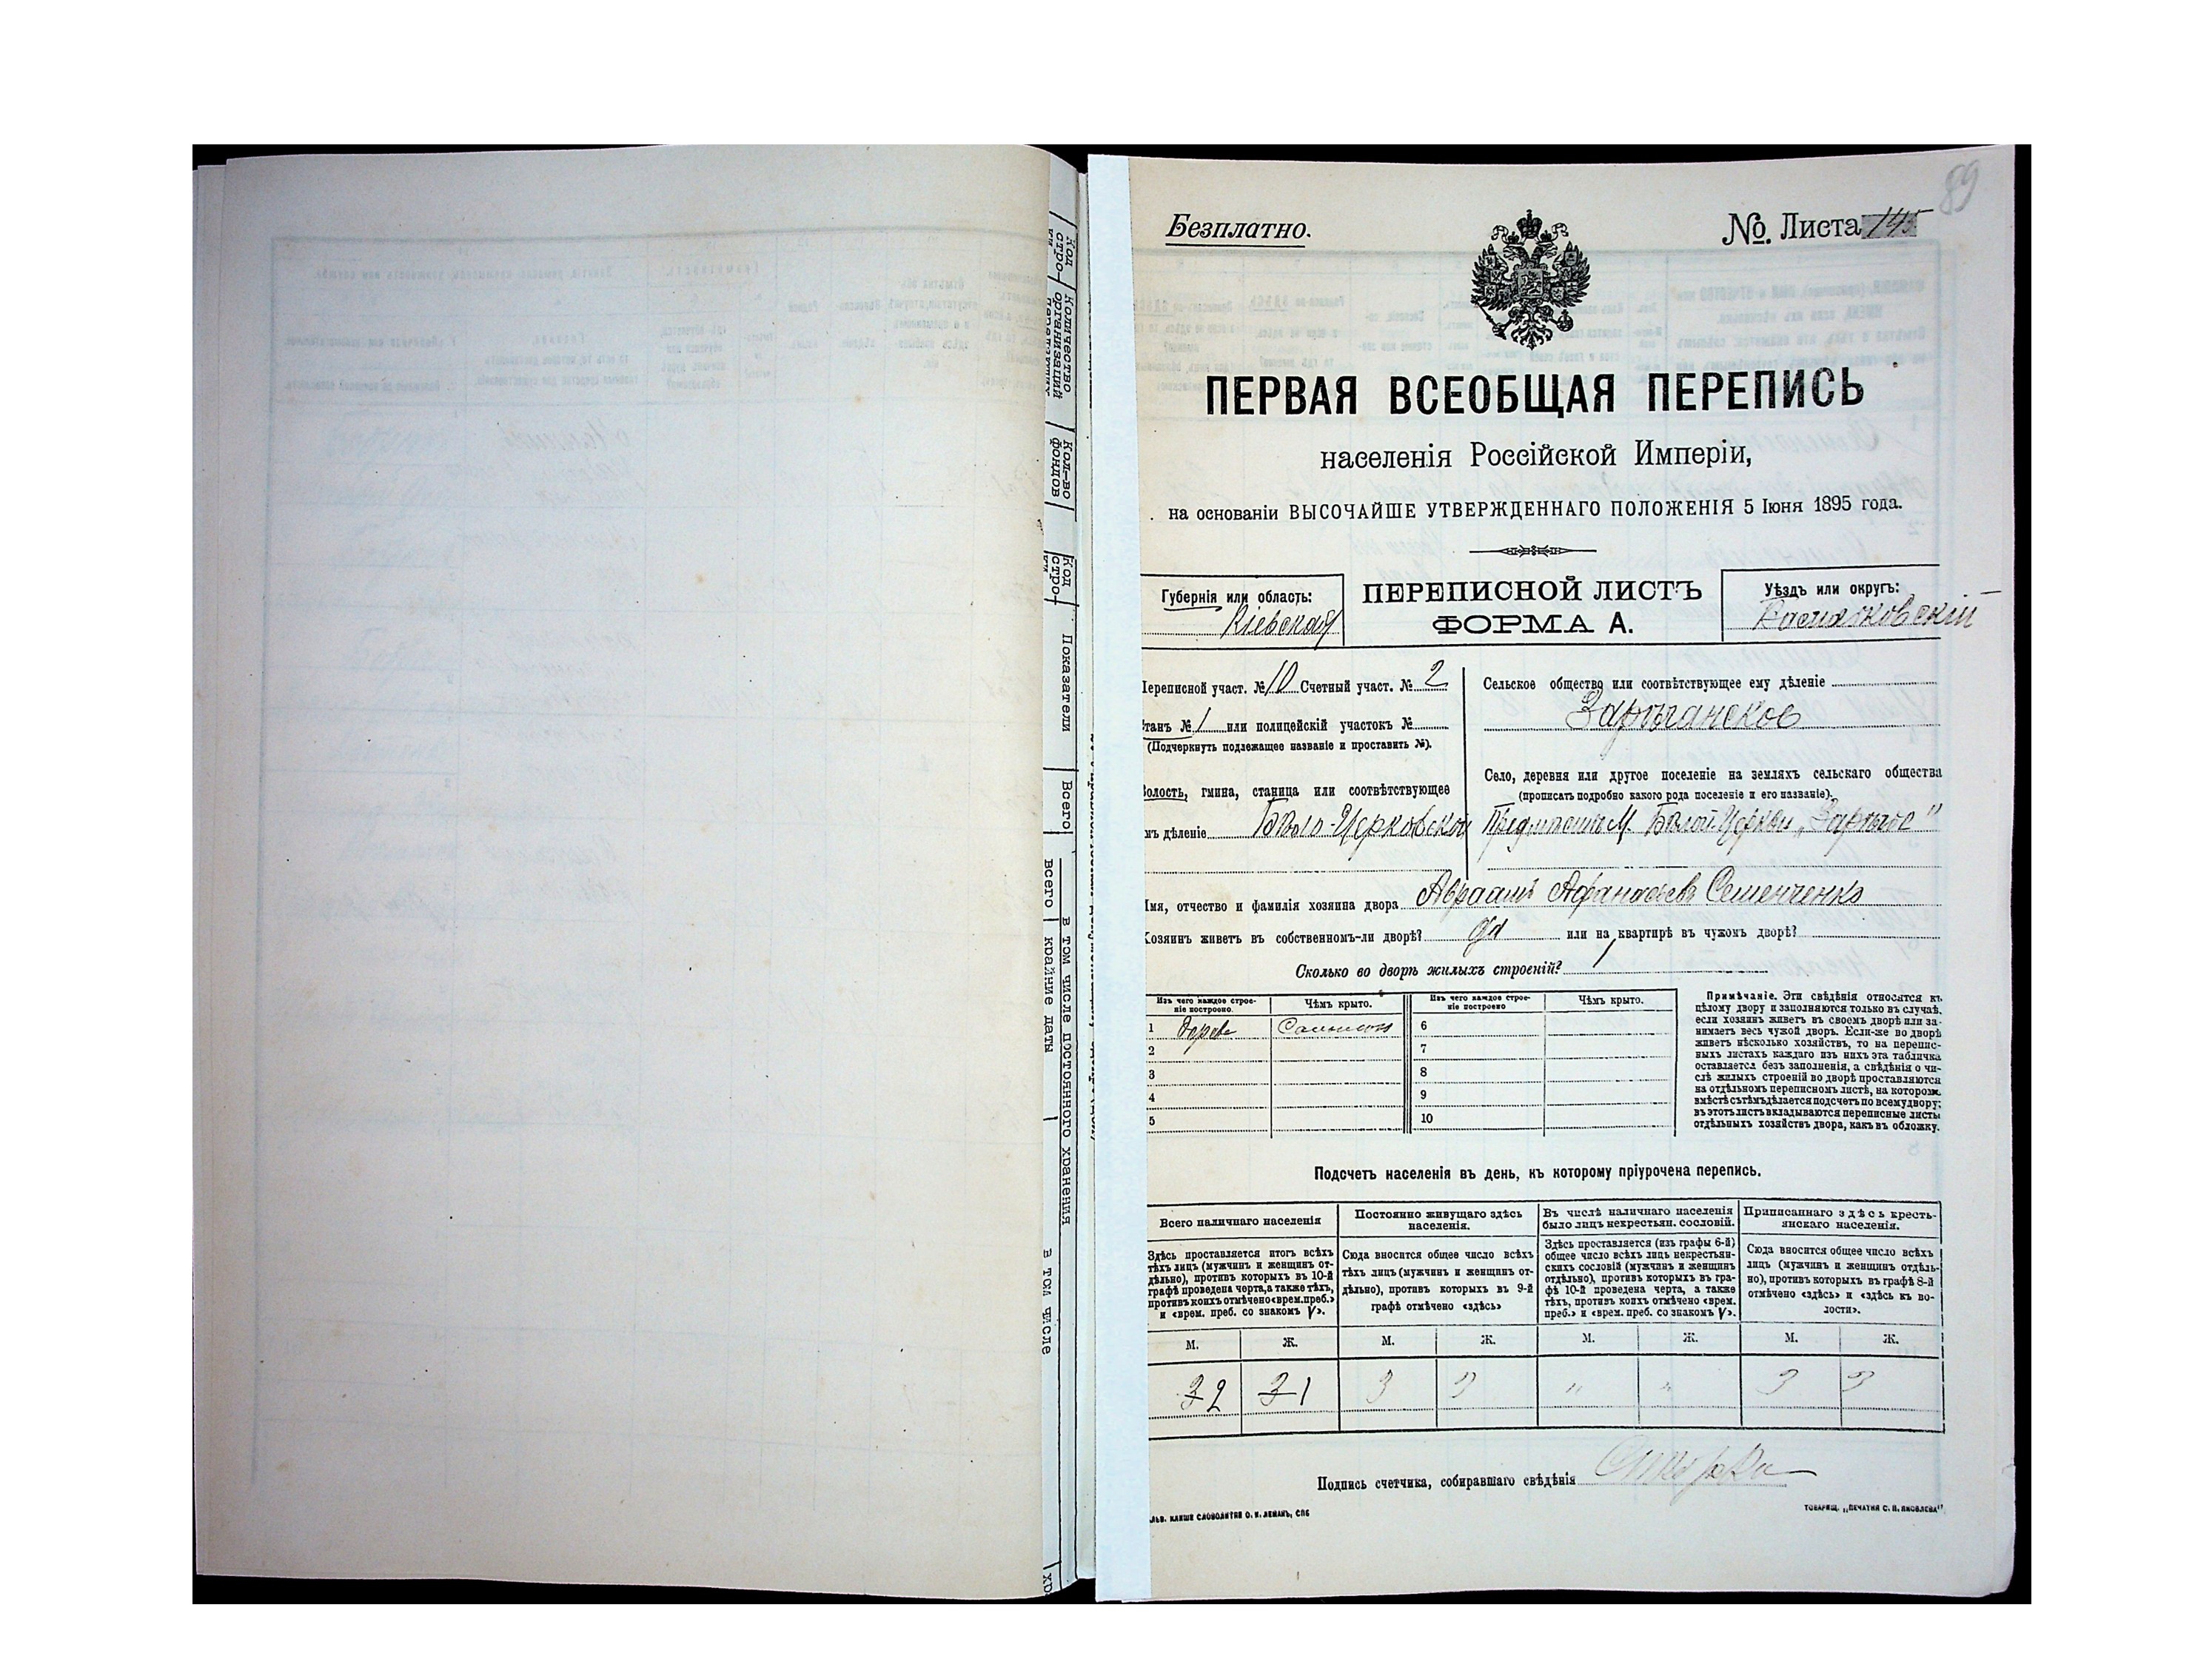 89
Безплатно.
№. Листа 145
ПЕРВАЯ ВСЕОБЩАЯ ПЕРЕПИСЬ
населенія Россійской Имперіи,
на основаніи ВЫСОЧАЙШЕ УТВЕРЖДЕННАГО ПОЛОЖЕНІЯ 5 Іюня 1895 года.
Губернія или область:
Кіевская
ПЕРЕПИСНОЙ ЛИСТЪ
ФОРМА А.
Уѣздъ или округъ:
Васильковскій
Переписной участ. № 10 Счетный участ. № 2
Станъ № 1 или полицейскій участокъ №
(Подчеркнуть подлежащее названіе и проставить №).
Волость, гмина, станица или соотвѣтствующее
имъ дѣленіе Бѣло-Церковской
Сельское общество или соотвѣтствующее ему дѣленіе
Зарѣчанское
Село, деревня или другое поселеніе на земляхъ сельскаго общества
(прописать подробно какого рода поселеніе и его названіе).
Предмѣстье М. Бѣлой-Церкви „Зарѣчье"
Имя, отчество и фамилія хозяина двора Авраамъ Афанасьевъ Семенченко
Хозяинъ живетъ въ собственномъ-ли дворѣ? да или на квартирѣ въ чужомъ дворѣ?
Сколько во дворѣ жилыхъ строеній? 1
Изъ чего каждое строе-
ніе построено.
Чѣмъ крыто.
Изъ чего каждое строе-
ніе построено
Чѣмъ крыто.
1 Дерева Соломою 6
2 7
3 8
4 9
5 10
Примѣчаніе. Эти свѣдѣнія относятся къ
цѣлому двору и заполняются только въ случаѣ,
если хозяинъ живетъ въ своемъ дворѣ или за-
нимаетъ весь чужой дворъ. Если-же во дворѣ
живетъ нѣсколько хозяйствъ, то на перепис-
ныхъ листахъ каждаго изъ нихъ эта табличка
оставляется безъ заполненія, а свѣдѣнія о чи-
слѣ жилыхъ строеній во дворѣ проставляются
на отдѣльномъ переписномъ листѣ, на которомъ
вмѣстѣ съ тѣмъ дѣлается подсчетъ по всему двору;
въ этотъ листъ вкладываются переписные листы
отдѣльныхъ хозяйствъ двора, какъ въ обложку.
Подсчетъ населенія въ день, къ которому пріурочена перепись.
Всего наличнаго населенія
Здѣсь проставляется итогъ всѣхъ
тѣхъ лицъ (мужчинъ и женщинъ от-
дѣльно), противъ которыхъ въ 10-й
графѣ проведена черта, а также тѣхъ,
противъ коихъ отмѣчено «врем. преб.»
и «врем. преб. со знакомъ V».
Постоянно живущаго здѣсь
населенія.
Сюда вносится общее число всѣхъ
тѣхъ лицъ (мужчинъ и женщинъ от-
дѣльно), противъ которыхъ въ 9-й
графѣ отмѣчено «здѣсь»
Въ числѣ наличнаго населенія
было лицъ некрестьян. сословій.
Здѣсь проставляется (изъ графы 6-й)
общее число всѣхъ лицъ некрестьян-
скихъ сословій (мужчинъ и женщинъ
отдѣльно), противъ которыхъ въ гра-
фѣ 10-й проведена черта, а также
тѣхъ, противъ коихъ отмѣчено «врем.
преб.» и «врем. преб. со знакомъ V».
Приписаннаго здѣсь кресть-
янскаго населенія.
Сюда вносится общее число всѣхъ
лицъ (мужчинъ и женщинъ отдѣль-
но), противъ которыхъ въ графѣ 8-й
отмѣчено «здѣсь» и «здѣсь къ во-
лости».
М. Ж. М. Ж. М. Ж. М. Ж.
3 2 3 1 3 3 " " 3 3
Подпись счетчика, собиравшаго свѣдѣнія
ГАЛЬВ. КЛИШЕ СЛОВОЛИТНИ О. И. ЛЕМАНЪ, СПБ
ТОВАРИЩ. „ПЕЧАТНЯ С. П. ЯКОВЛЕВА"
Код
стро-
ки
Количество
организаций
Кол-во
фондов
Код
стро-
ки
Показатели
Всего
в том числе постоянного хранения
всего
крайние даты
в том числе